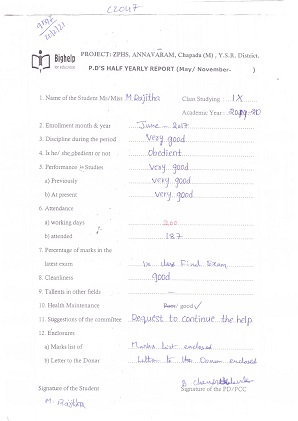 C2047
Bighelp
for education
PROJECT: ZPHS, ANNAVARAM, Chapadu (M), Y.S.R. District.
P.D'S HALF YEARLY REPORT (May/ November- )
1. Name of the Student Mr/Miss M Rajitha Class Studying : IX
Academic Year
2. Enrollment month & year : June - 2017
3. Discipline during the period : Very good
4. Is he/ she obedient or not : Obedient
5. Performance in Studies : Very good
a) Previously : very good
b) At present : very good
6. Attendance
a) working days : 200
b) attended : 187
7. Percentage of marks in the
latest exam : Final Exam
8. Cleanliness : good
9. Tallents in other fields : -
10. Health Maintenance : Poor/ good ✓
11. Suggestions of the committee : Request to continue the help
12. Enclosures
a) Marks list of : Marks list enclosed
b) Letter to the Donar : Letter to the Donar enclosed
Signature of the Student
Signature of the PD/PCC
M. Rajitha